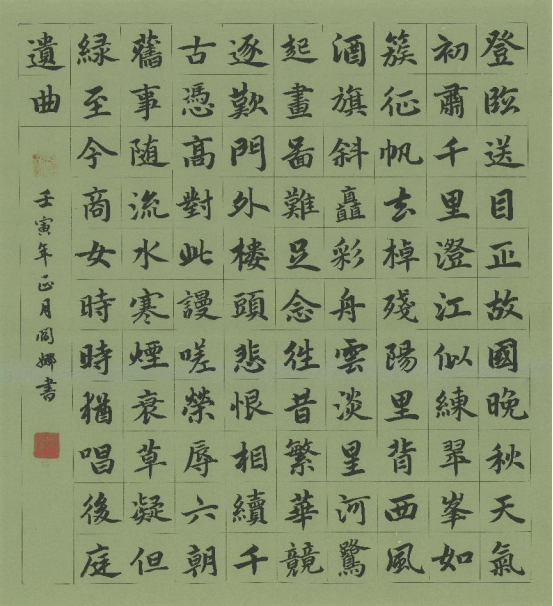 登臨送目正故國晚秋天氣
初肅千里澄江似練翠峯如
簇征帆去棹殘陽里背西風
酒旗斜矗彩舟雲淡星河鷺
起畫啚難足念往昔繁華競
逐歎門外楼頭悲恨相續千
古憑高對此謾嗟榮辱六朝
舊事随流水寒煙衰草凝但
緑至今商女時時猶唱後庭
遺曲
壬寅年正月閆娜書